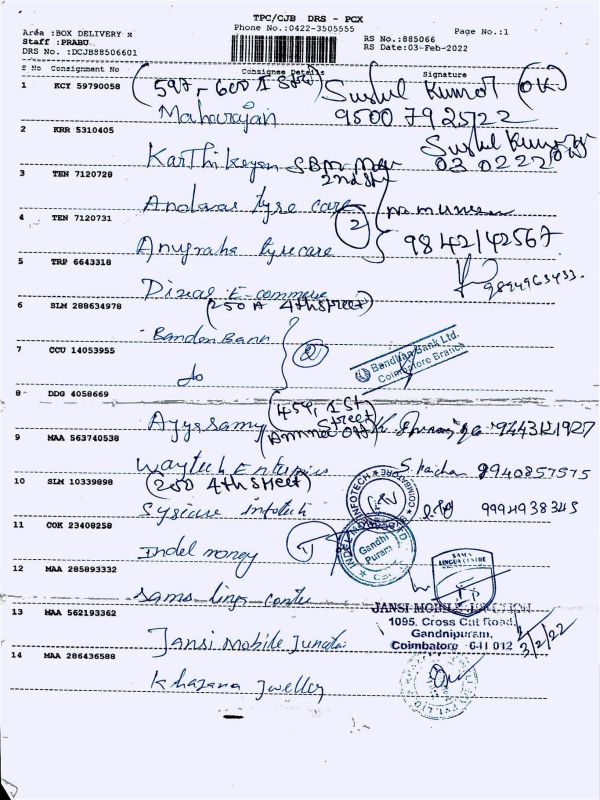 TPC/CJB DRS - PCX
Phone No:0422-3505555
Area :BOX DELIVERY x
Staff :PRABU
DRS No. :DCJB88506601
RS No.:885066
RS Date:03-Feb-2022
Page No.:1
S No Consignment No Consignee Details Signature
1 KCY 59790058 (597, 600 1 Street) Sushil Kumar (OK)
Maharajan 9500792522
2 KRR 5310405 Sushil Kumar
Karthikeyan SBM 030222
3 TEN 7120728 2nd St
Andavar tyre care
4 TEN 7120731 2
Anugraha tyre care 9842142567
5 TRP 6643318
E-commerce 9894963433
6 SLM 288634978 (250 A 4th Street)
Banden Bank
7 CCU 14053955 2 Bandhan Bank Ltd.
Coimbatore Branch
do
8 DDG 4058669 (459, 1 St Street)
Ayyasamy (Amma Off) 9443121927
9 MAA 563740538
Waytech S. 9940857575
10 SLM 10339898 (250 4th Street)
Syscure infotech 9994938345
11 COK 23408258
Indel money Gandhi Puram
12 MAA 285893332 SAMS LINGUA CENTRE
Sams
13 MAA 562193362 JANSI MOBILE JUNCTION
1095, Cross Cut Road,
Gandhipuram,
Coimbatore - 641 012 3/2/22
Jansi Mobile
14 MAA 286436588
Khazana Jwelley